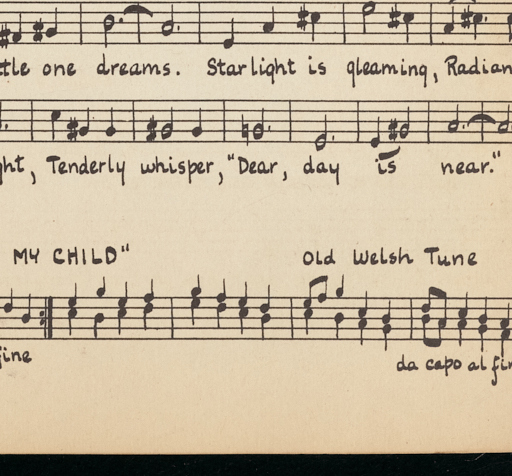 ttle one dreams. Starlight is gleaming, Radian
ght, Tenderly whisper, "Dear, day is near."
MY CHILD" Old Welsh Tune
fine da capo al fin